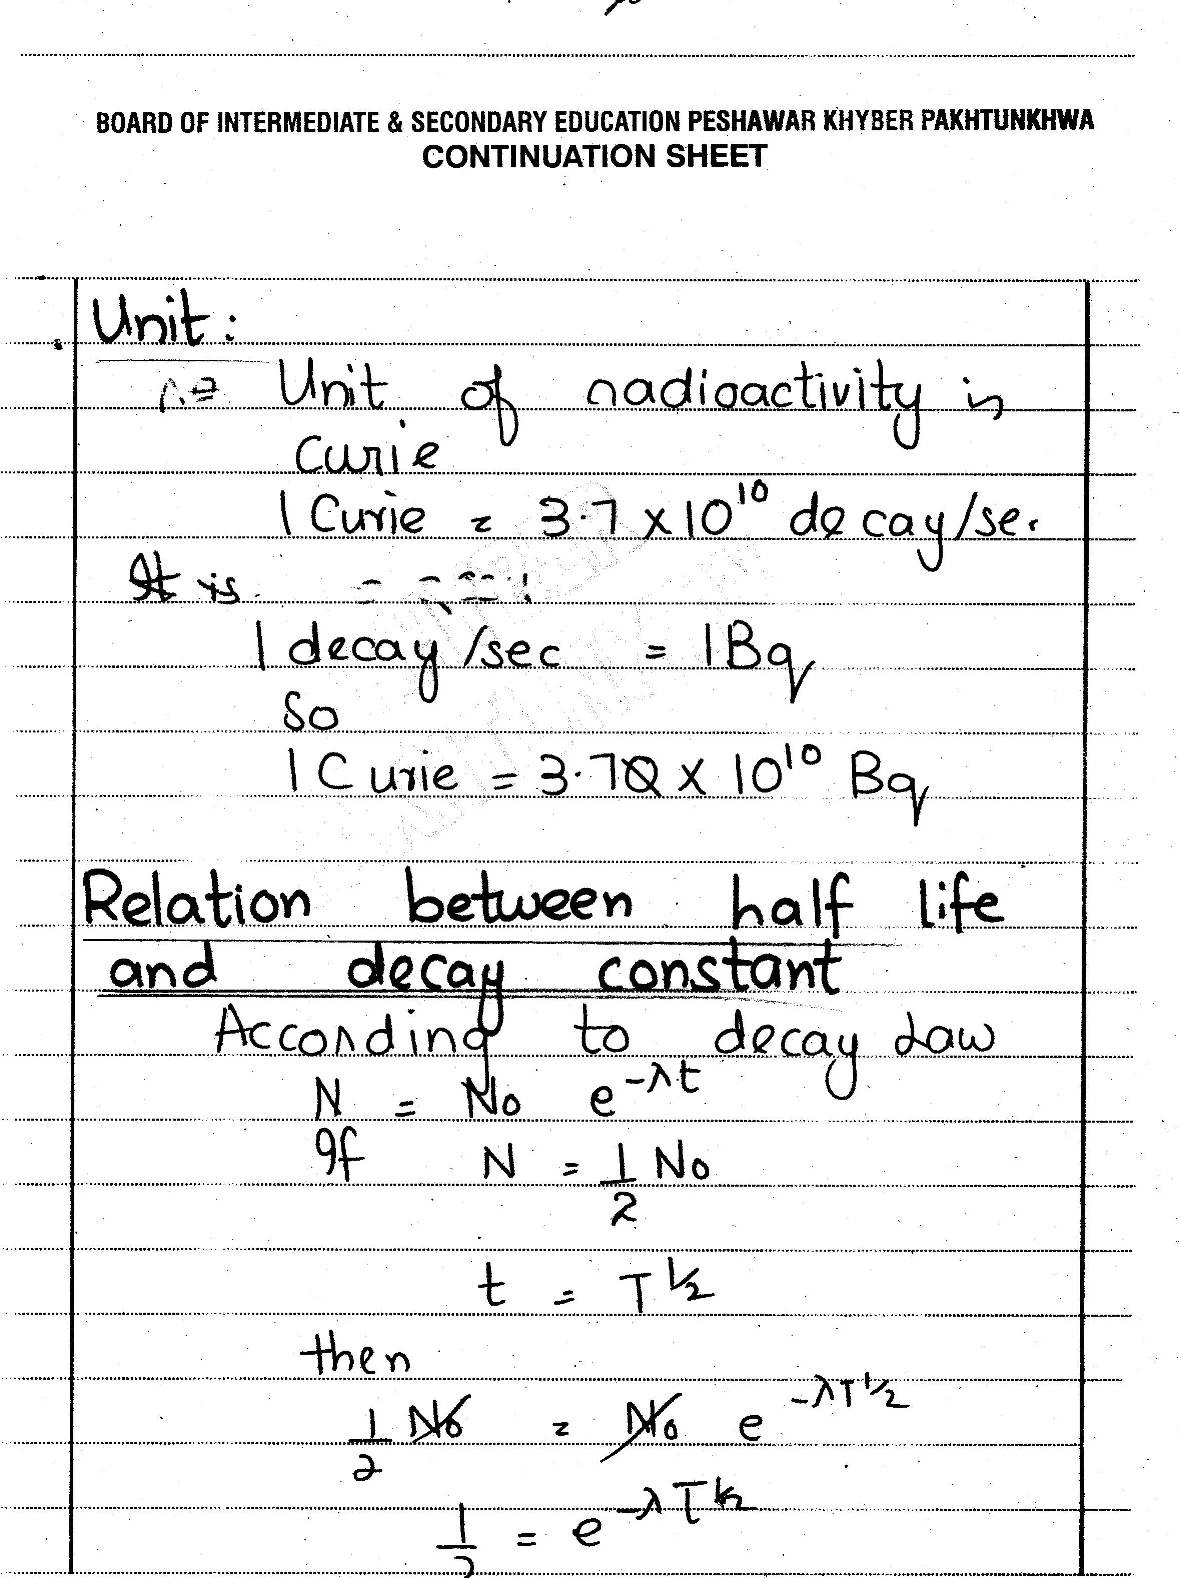 BOARD OF INTERMEDIATE & SECONDARY EDUCATION PESHAWAR KHYBER PAKHTUNKHWA
CONTINUATION SHEET
Unit:
Unit of radioactivity is
Curie
1 Curie = 3.7 × 10¹⁰ decay/sec
It is
1 decay/sec = 1 Bq
So
1 Curie = 3.70 × 10¹⁰ Bq
Relation between half life
and decay constant
According to decay Law
N = No e^-λt
If N = 1/2 No
t = T 1/2
then
1/2 No = No e^-λT 1/2
1/2 = e^-λT 1/2